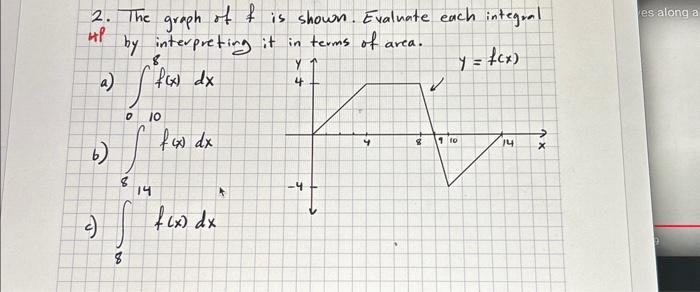 2. The graph of f is shown. Evaluate each integral
4P by interpreting it in terms of area.
a) ∫ 0 8 f(x) dx
b) ∫ 8 10 f(x) dx
c) ∫ 8 14 f(x) dx
y
y = f(x)
4
4 8 9 10 14 x
-4
es along a